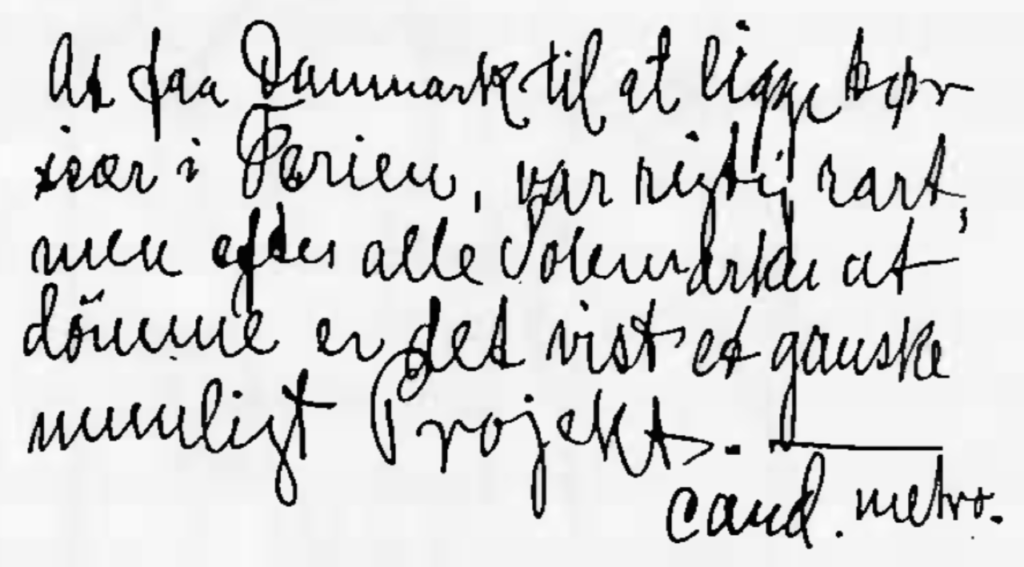 At faa Danmark til at ligge tør
især i Ferien, var rigtig rart,
men efter alle Solemærker at
dömme er det vist et ganske
umuligt Projekt. —
cand. metro.